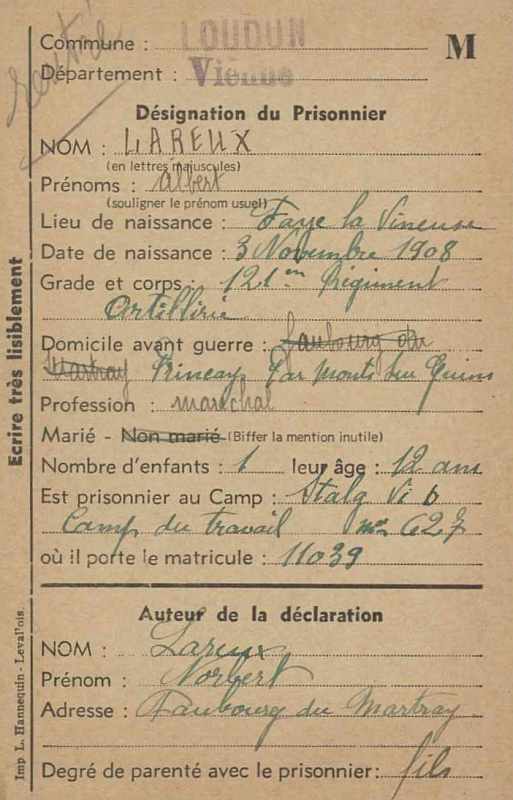 rentré
Commune : LOUDUN
M
Département : Vienne
Désignation du Prisonnier
NOM : LAREUX
(en lettres majuscules)
Prénoms : albert
(souligner le prénom usuel)
Lieu de naissance : Faye la Vineuse
Date de naissance : 3 Novembre 1908
Grade et corps : 121em Régiment
Artillirie
Domicile avant guerre : Faubourg du
Martray Princay Par Monts sur Guins
Profession : maréchal
Marié - Non marié (Biffer la mention inutile)
Nombre d'enfants : 1 leur âge : 12 ans
Est prisonnier au Camp : Stalg VI D
Camp du travail no 627
où il porte le matricule : 11039
Auteur de la déclaration
NOM : Lareux
Prénom : Norbert
Adresse : Faubourg du Martray
Degré de parenté avec le prisonnier : fils
Ecrire très lisiblement
Imp. L. Hannequin - Levallois.